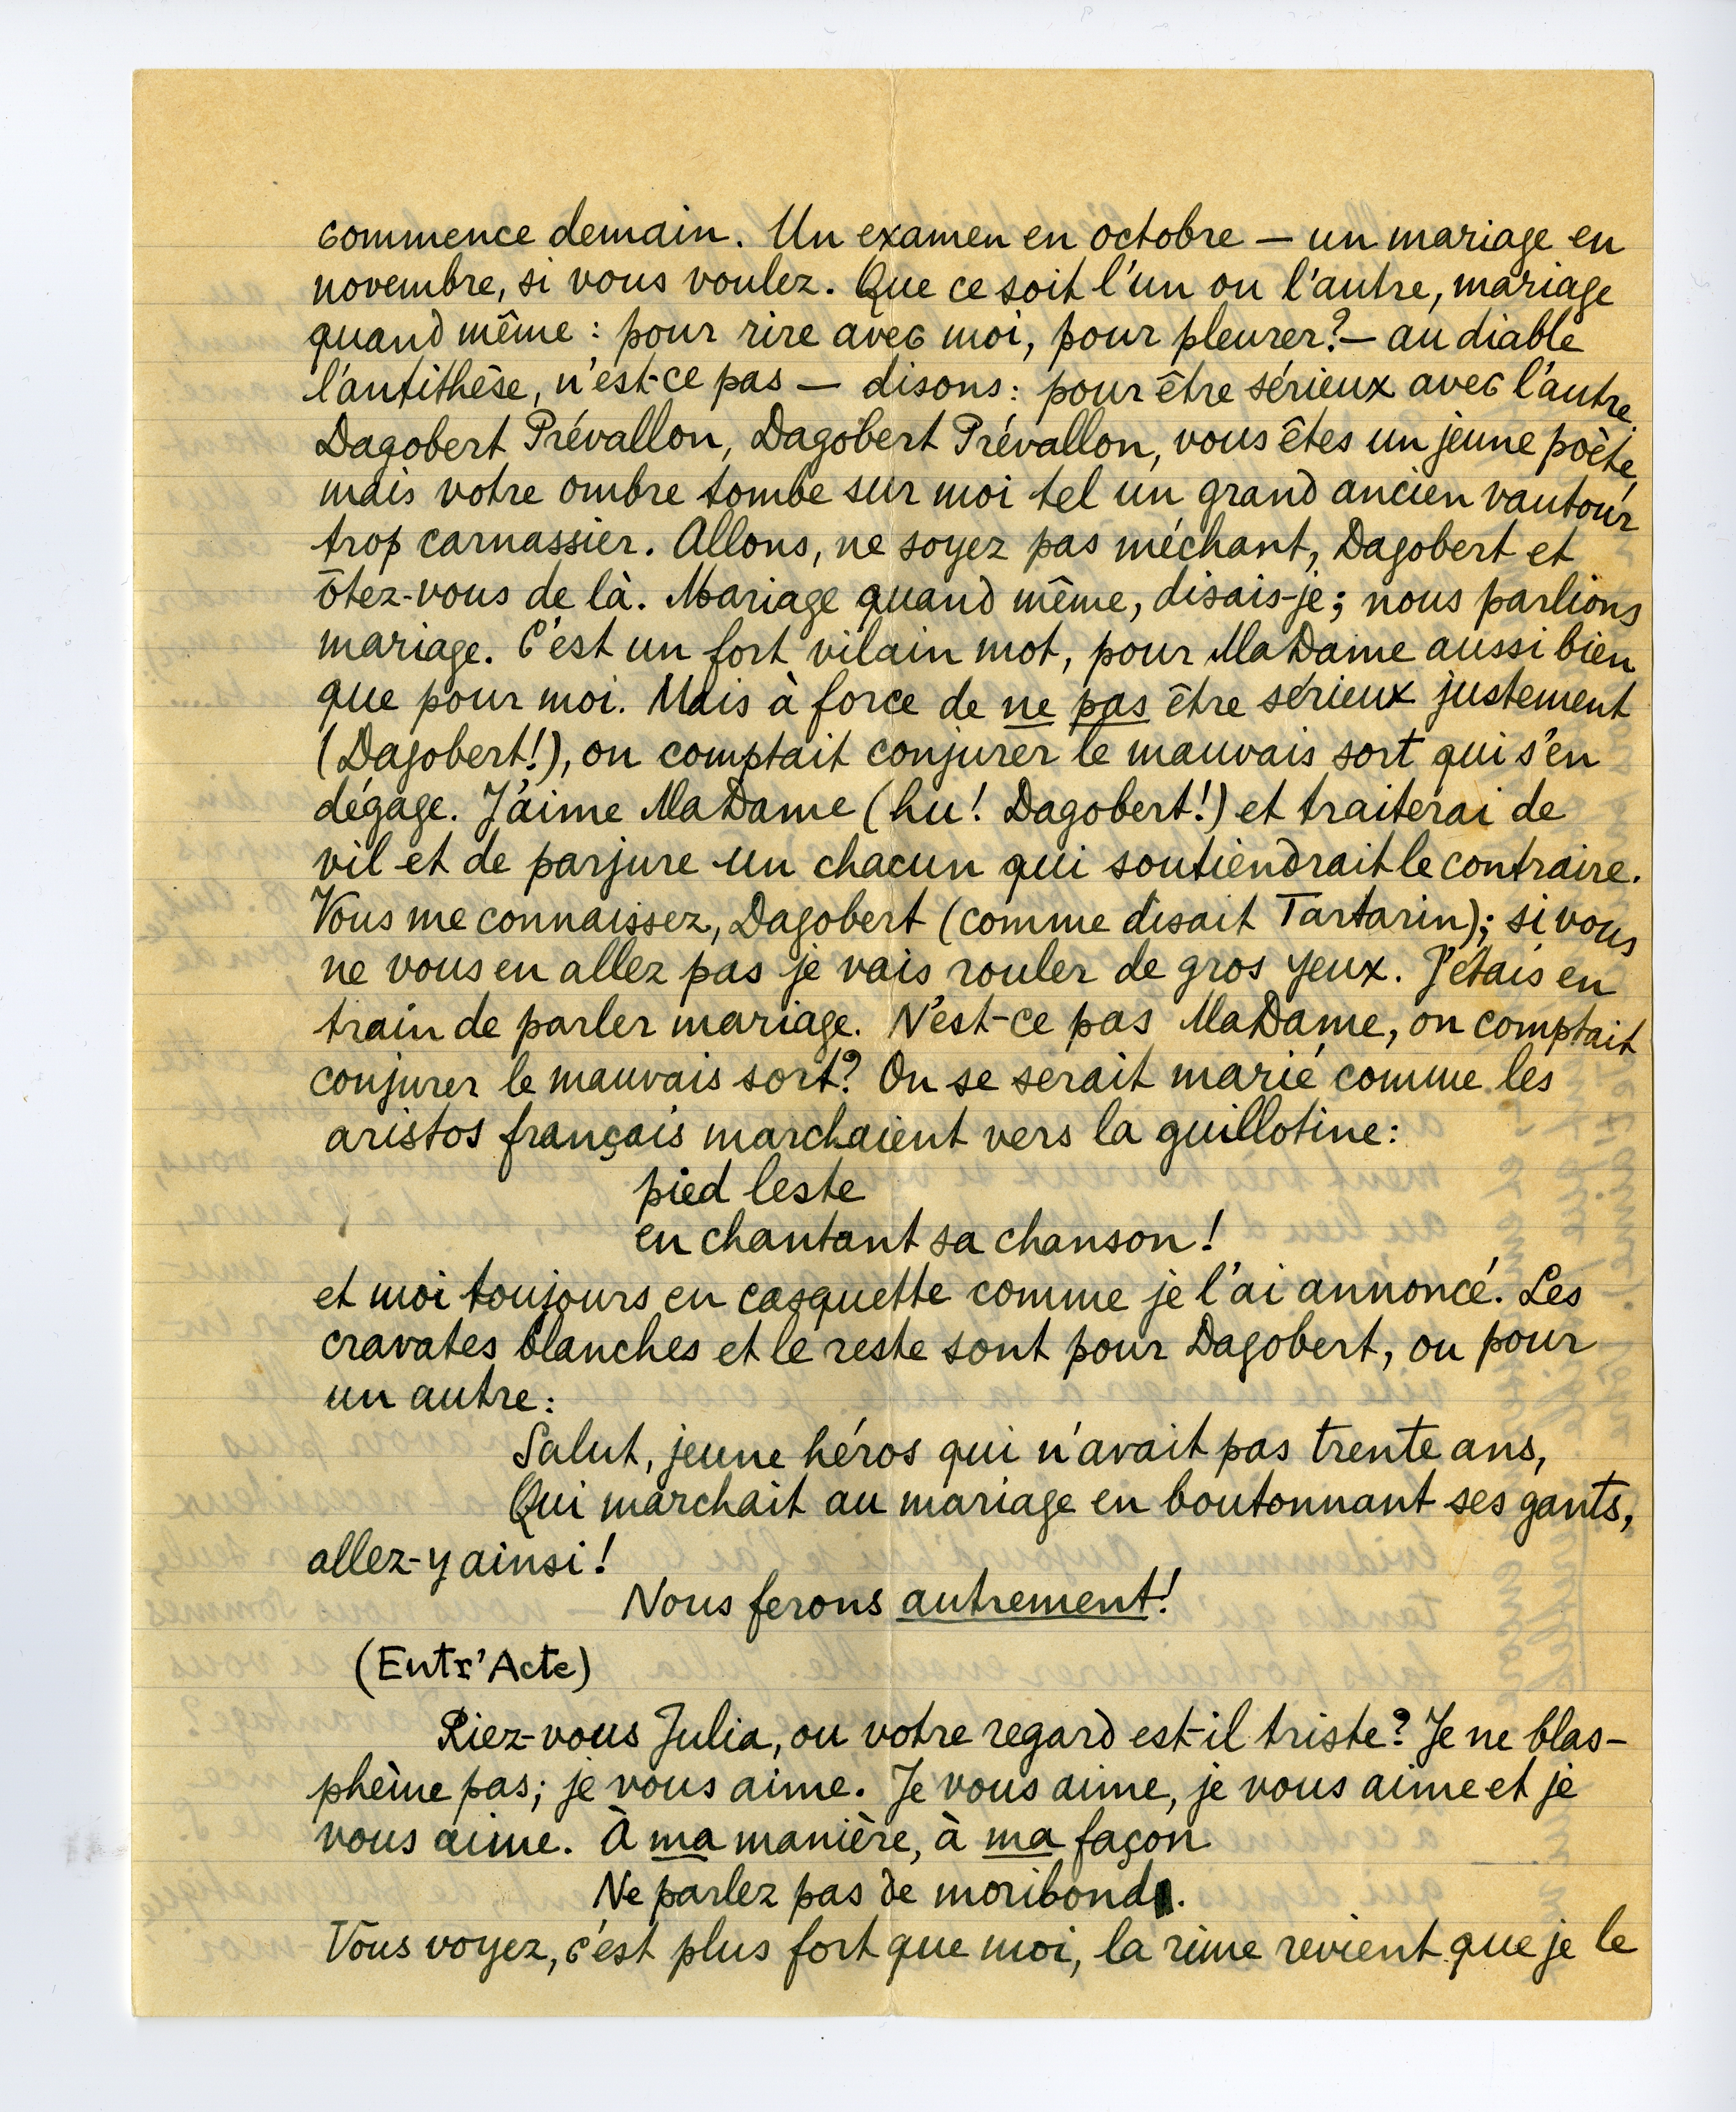 commence demain. Un examen en octobre — un mariage en
novembre, si vous voulez. Que ce soit l'un ou l'autre, mariage
quand même : pour rire avec moi, pour pleurer? — au diable
l'antithèse, n'est-ce pas — disons : pour être sérieux avec l'autre.
Dagobert Prévallon, Dagobert Prévallon, vous êtes un jeune poète,
mais votre ombre tombe sur moi tel un grand ancien vautour
trop carnassier. Allons, ne soyez pas méchant, Dagobert et
ôtez-vous de là. Mariage quand même, disais-je; nous parlions
mariage. C'est un fort vilain mot, pour MaDame aussi bien
que pour moi. Mais à force de ne pas être sérieux justement
(Dagobert!), on comptait conjurer le mauvais sort qui s'en
dégage. J'aime MaDame (hu! Dagobert!) et traiterai de
vil et de parjure un chacun qui soutiendrait le contraire.
Vous me connaissez, Dagobert (comme disait Tartarin); si vous
ne vous en allez pas je vais rouler de gros yeux. J'étais en
train de parler mariage. N'est-ce pas MaDame, on comptait
conjurer le mauvais sort? On se serait marié comme les
aristos français marchaient vers la guillotine:
pied leste
en chantant sa chanson!
et moi toujours en casquette comme je l'ai annoncé. Les
cravates blanches et le reste sont pour Dagobert, ou pour
un autre:
Salut, jeune héros qui n'avait pas trente ans,
Qui marchait au mariage en boutonnant ses gants,
allez-y ainsi!
Nous ferons autrement!
(Entr'Acte)
Riez-vous Julia, ou votre regard est-il triste? Je ne blas-
phème pas; je vous aime. Je vous aime, je vous aime et je
vous aime. À ma manière, à ma façon
Ne parlez pas de moribond.
Vous voyez, c'est plus fort que moi, la rime revient que je le